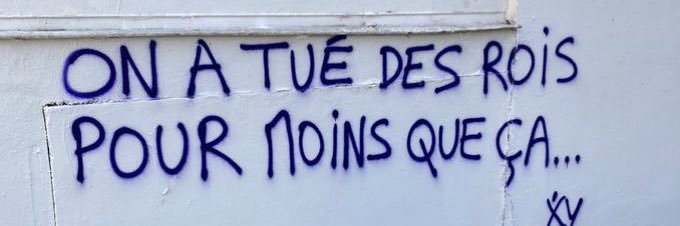 ON A TUÉ DES ROIS
POUR MOINS QUE ÇA...
XY